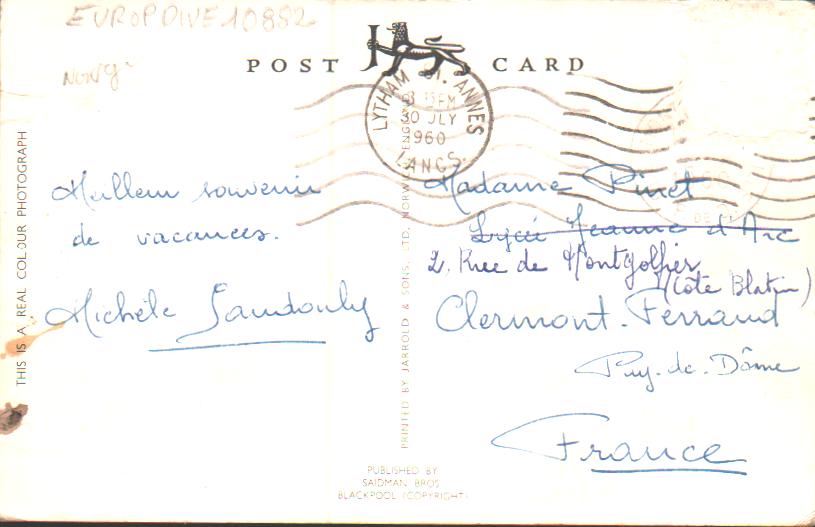 EUROPDIVE10882
POST CARD
LYTHAM ST. ANNES
8 15PM
30 JLY
1960
LANCS.
Meilleur souvenir
de vacances.
Michèle
Madame Pinet
Lycée Jeanne d'Arc
2. Rue de Montgolfier
(Côte Blatin)
Clermont-Ferrand
Puy-de-Dôme
France
THIS IS A REAL COLOUR PHOTOGRAPH
PRINTED BY JARROLD & SONS, LTD, NORWICH, ENGLAND
PUBLISHED BY
SAIDMAN BROS
BLACKPOOL (COPYRIGHT)